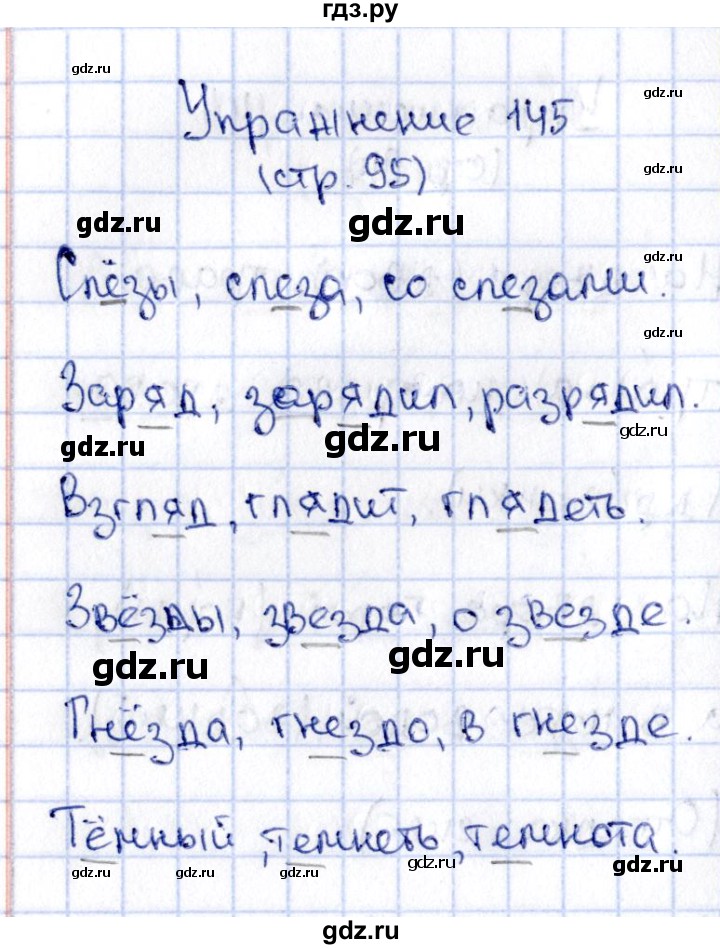 гдз.ру
gdz.ru
gdz.ru
Упражнение 145
gdz.ru
(стр. 95)
gdz.ru
gdz.ru
gdz.ru
Слёзы, слеза, со слезами.
gdz.ru
Заряд, зарядил, разрядил.
gdz.ru
gdz.ru
gdz.ru
Взгляд, глядит, глядеть.
Звёзды, звезда, о звезде.
gdz.ru
gdz.ru
Гнёзда, гнездо, в гнезде.
Тёмный, темнеть, темнота.
gdz.ru
gdz.ru
gdz.ru
gdz.ru
gdz.ru
gdz.ru
gdz.ru